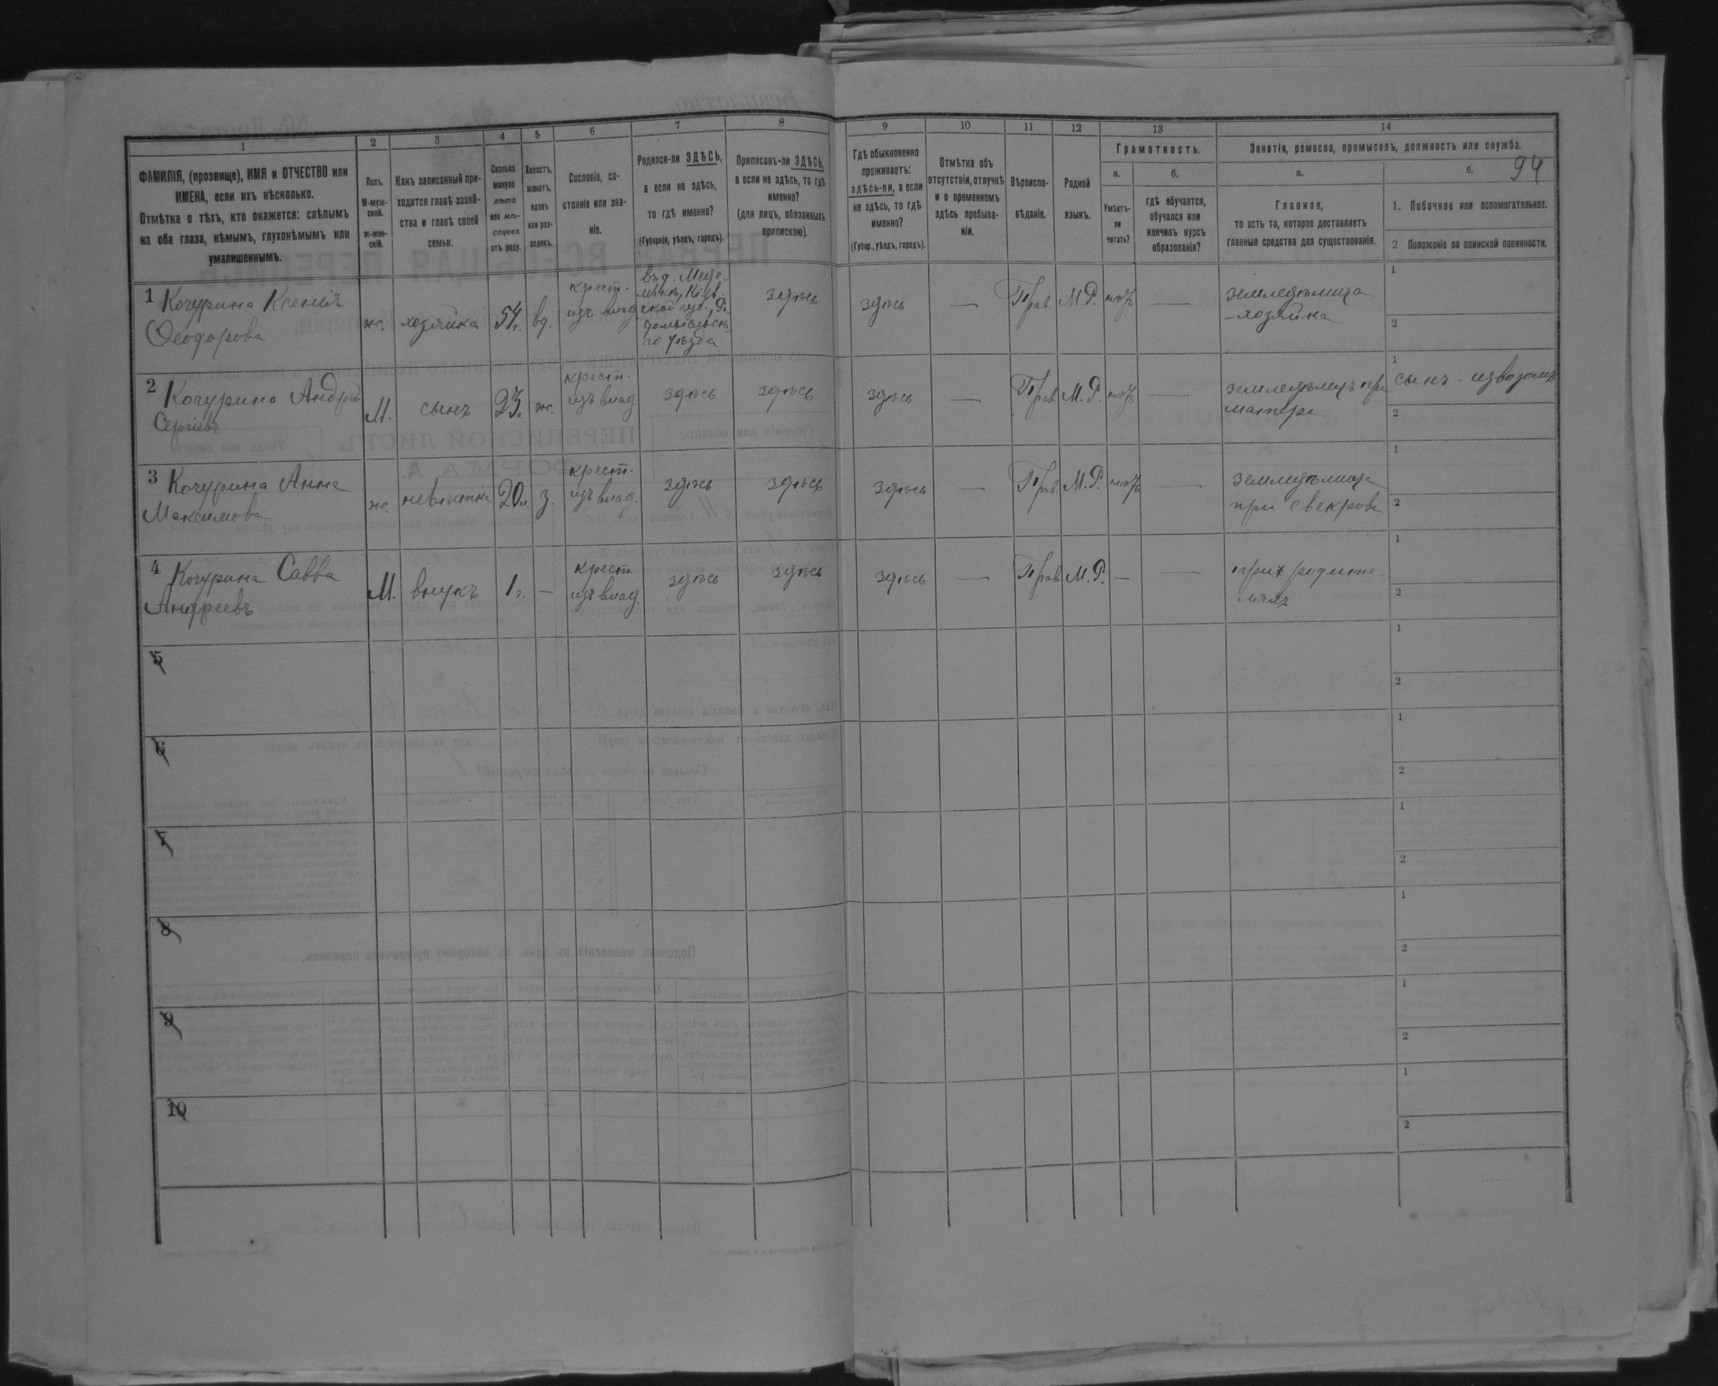 94
1 2 3 4 5 6 7 8 9 10 11 12 13 14
ФАМИЛІЯ, (прозвище), ИМЯ и ОТЧЕСТВО или
ИМЕНА, если ихъ нѣсколько.
Отмѣтка о тѣхъ, кто окажется: слѣпымъ
на оба глаза, нѣмымъ, глухонѣмымъ или
умалишеннымъ.
Полъ.
М-муж-
ской.
Ж-жен-
скій.
Какъ записанный при-
ходится главѣ хозяй-
ства и главѣ своей
семьи.
Сколько
минуло
лѣтъ
или мѣ-
сяцевъ
отъ роду.
Холостъ,
женатъ,
вдовъ
или раз-
веденъ.
Сословіе, со-
стояніе или зва-
ніе.
Родился-ли ЗДѢСЬ,
а если не здѣсь,
то гдѣ именно?
(Губернія, уѣздъ, городъ).
Приписанъ-ли ЗДѢСЬ,
а если не здѣсь, то гдѣ
именно?
(для лицъ, обязанныхъ
припискою).
Гдѣ обыкновенно
проживаетъ:
здѣсь-ли, а если
не здѣсь, то гдѣ
именно?
(Губер., уѣздъ, городъ).
Отмѣтка объ
отсутствіи, отлучкѣ
и о временномъ
здѣсь пребыва-
ніи.
Вѣроиспо-
вѣданіе.
Родной
языкъ.
Грамотность.
а.
Умѣетъ-
ли
читать?
б.
гдѣ обучается,
обучался или
кончилъ курсъ
образованія?
Занятіе, ремесло, промыселъ, должность или служба.
а.
Главное,
то есть то, которое доставляетъ
главныя средства для существованія.
б.
1. Побочное или вспомогательное.
2 Положеніе по воинской повинности.
1 Кочурина Ксенія
Ѳеодорова
ж.
хозяйка
54 г.
вд.
крест.
изъ влад.
Кіев-
ской губ., Ра-
домысльска-
го уѣзда
здѣсь
здѣсь
—
Прав.
М.Р.
нѣтъ
—
земледѣлица
-хозяйка
1
2
2 Кочурина Андрей
Сергіевъ
М.
сынъ
23 г.
ж.
крест.
изъ влад.
здѣсь
здѣсь
здѣсь
—
Прав.
М.Р.
нѣтъ
—
земледѣлецъ при
матери
1
сынъ - извозомъ
2
3 Кочурина Анна
Максимова
ж.
невѣстка
20 л.
з.
крест.
изъ влад.
здѣсь
здѣсь
здѣсь
—
Прав.
М.Р.
нѣтъ
—
земледѣлица
при свекрови
1
2
4 Кочурина Савва
Андреевъ
М.
внукъ
1 г.
—
крест.
изъ влад.
здѣсь
здѣсь
здѣсь
—
Прав.
М.Р.
—
—
при родите-
ляхъ
1
2
5
1
2
6
1
2
7
1
2
8
1
2
9
1
2
10
1
2